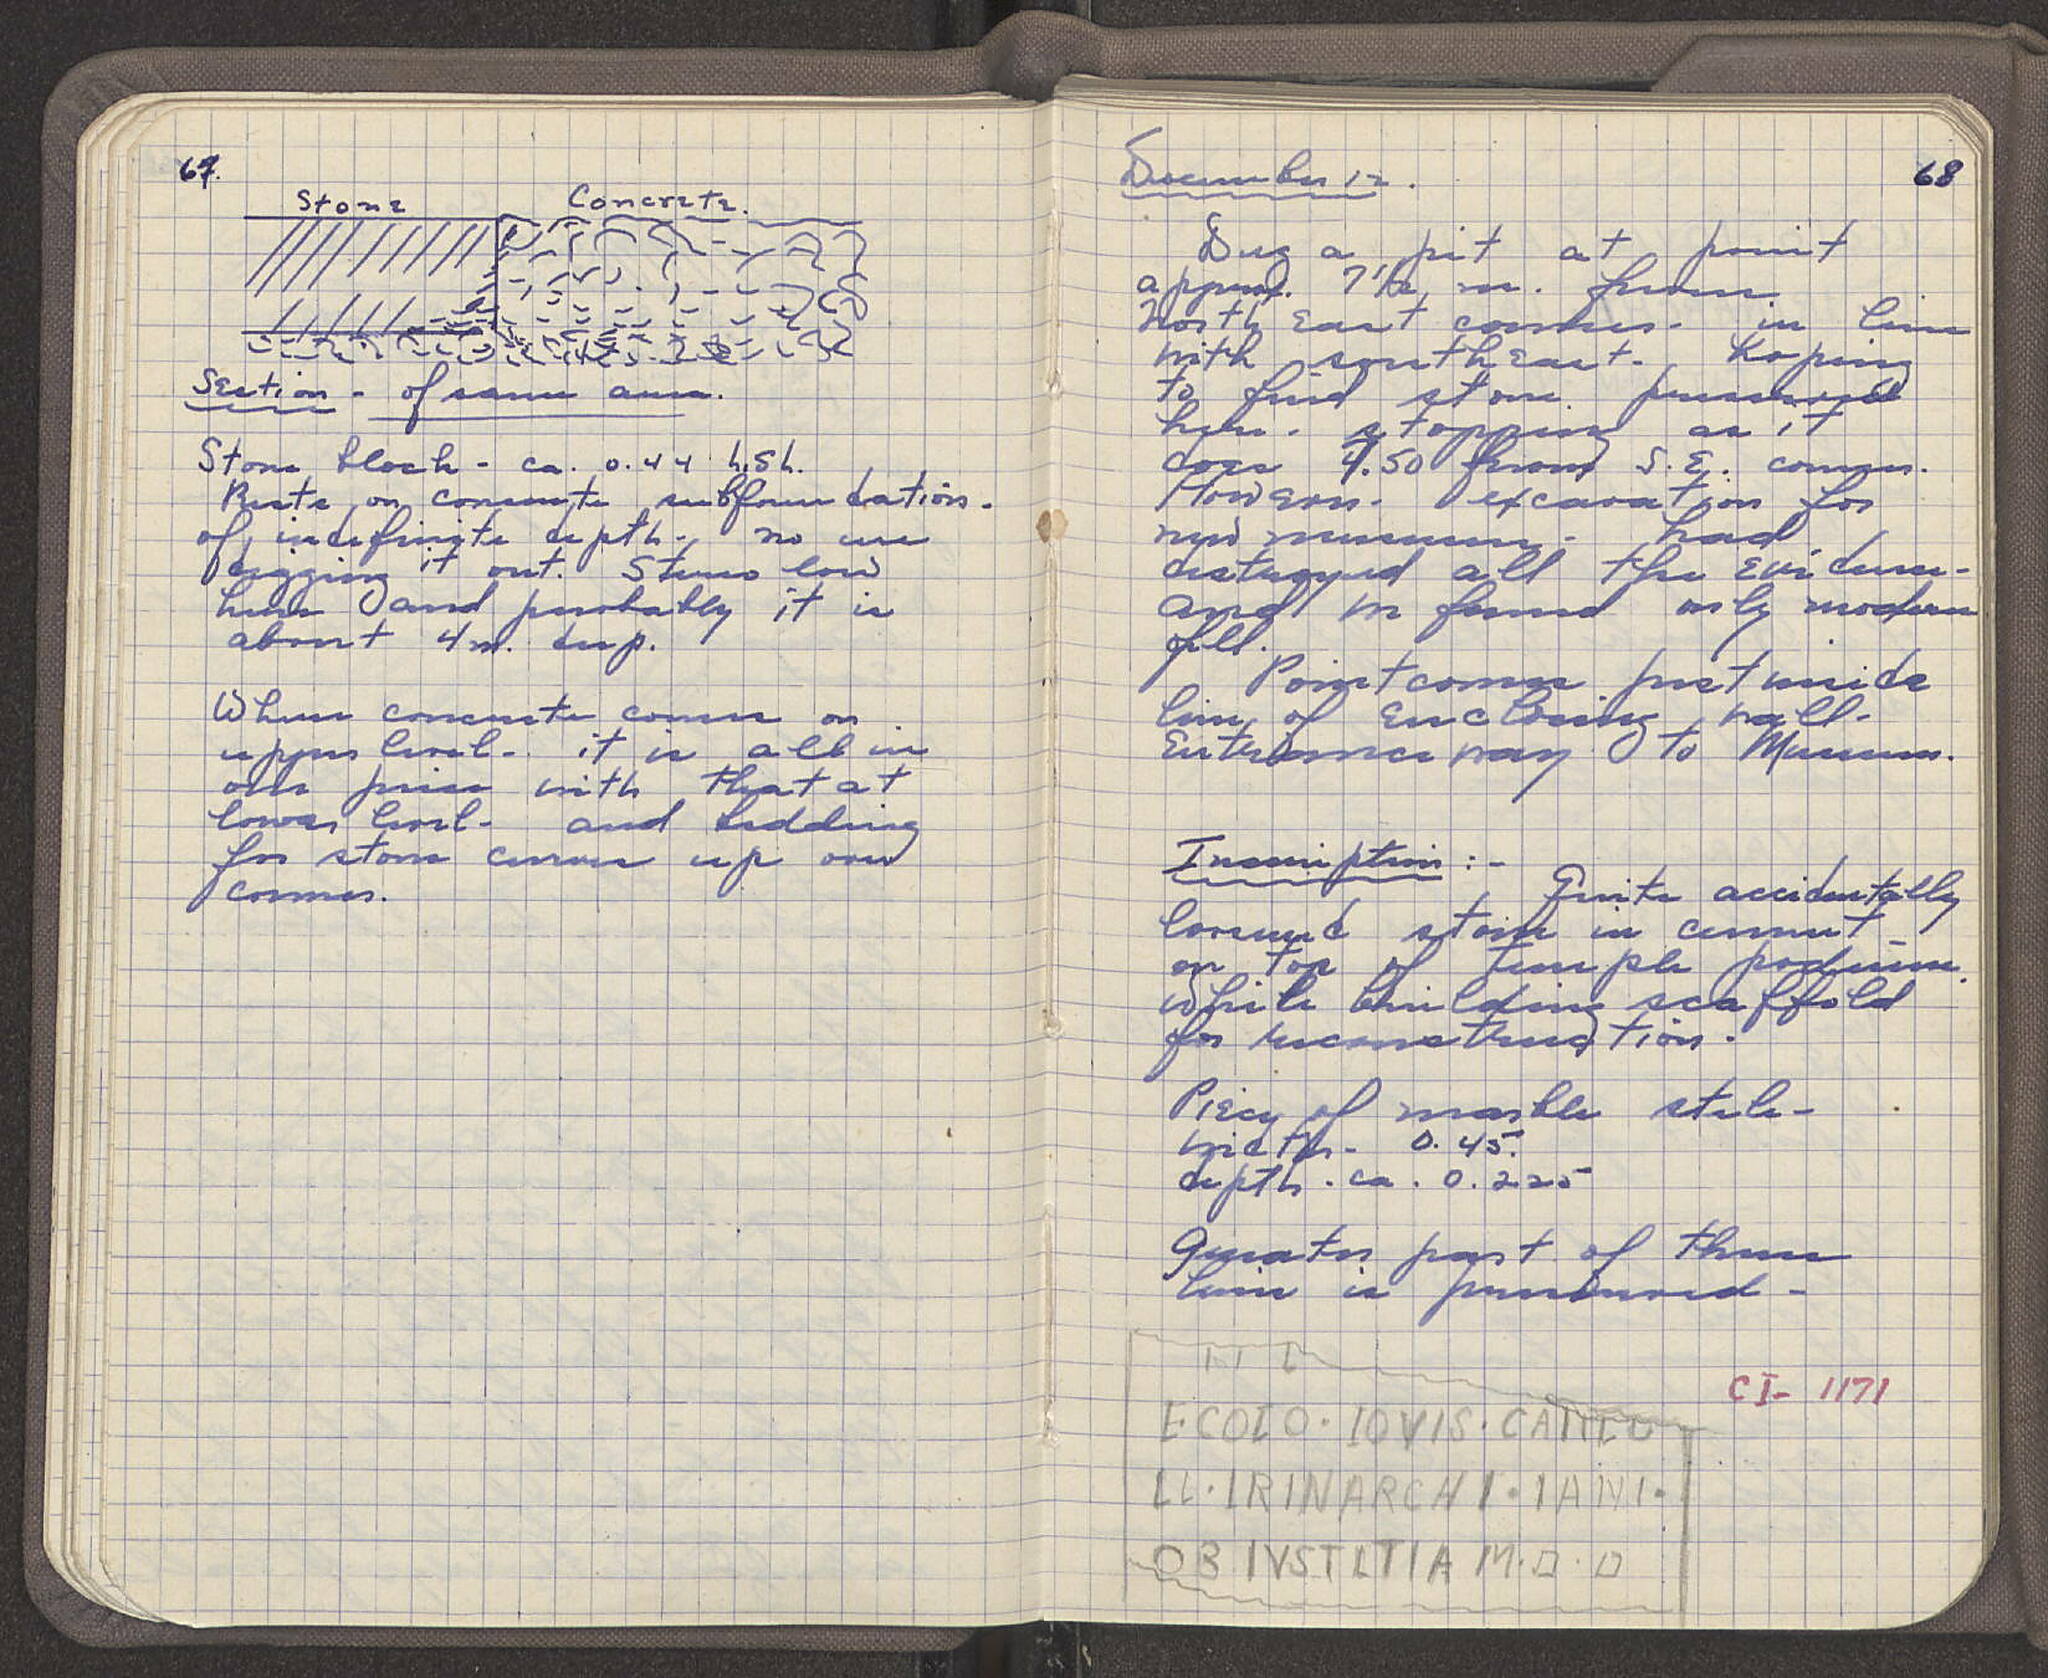 67.
Stone Concrete.
Section - of same area.
Stone block - ca. 0.44 high.
Rests on concrete subfoundation.
of indefinite depth - no use
digging it out. Stereo low
here and probably it is
about 4 m. deep.
Where concrete comes on
upper level - it is all in
one piece with that at
lower level - and bedding
for stone curves up over
corner.
68
December 12.
Dug a pit at point
approx. 7 1/2 m. from
North East corner - in line
with south East - hoping
to find stone preserved
here - stopping as it
does 4.50 from S.E. corner.
However - excavation for
new museum - had
destroyed all the evidence -
and we found only modern
fill.
Point comes just inside
line of enclosing wall -
Entrance way to Museum.
Inscription :-
Quite accidentally
loosened stone in cement
on top of temple podium
while building scaffold
for reconstruction.
Piece of marble stele -
width - 0.45.
depth - ca. 0.225
Greater part of three
lines is preserved -
CI- 1171
ECOLO · IOVIS · CAPITO
LL · IRINARCHI · IANI ·
OB IVSTITIA M · D · D